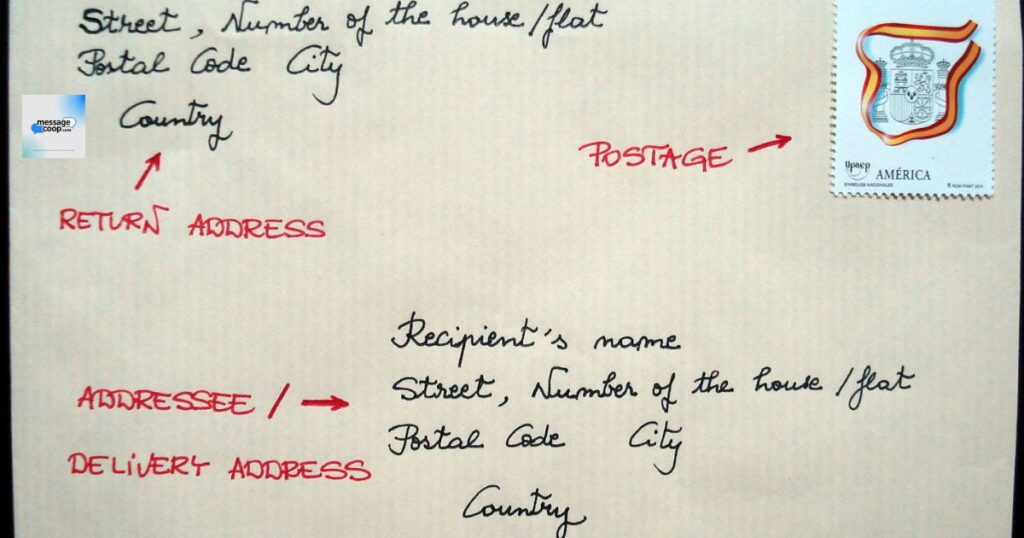 Street, Number of the house/flat
Postal Code City
Country
message
coop.com
POSTAGE
UPAEP AMÉRICA
RETURN ADDRESS
Recipient's name
Street, Number of the house/flat
Postal Code City
Country
ADDRESSEE /
DELIVERY ADDRESS